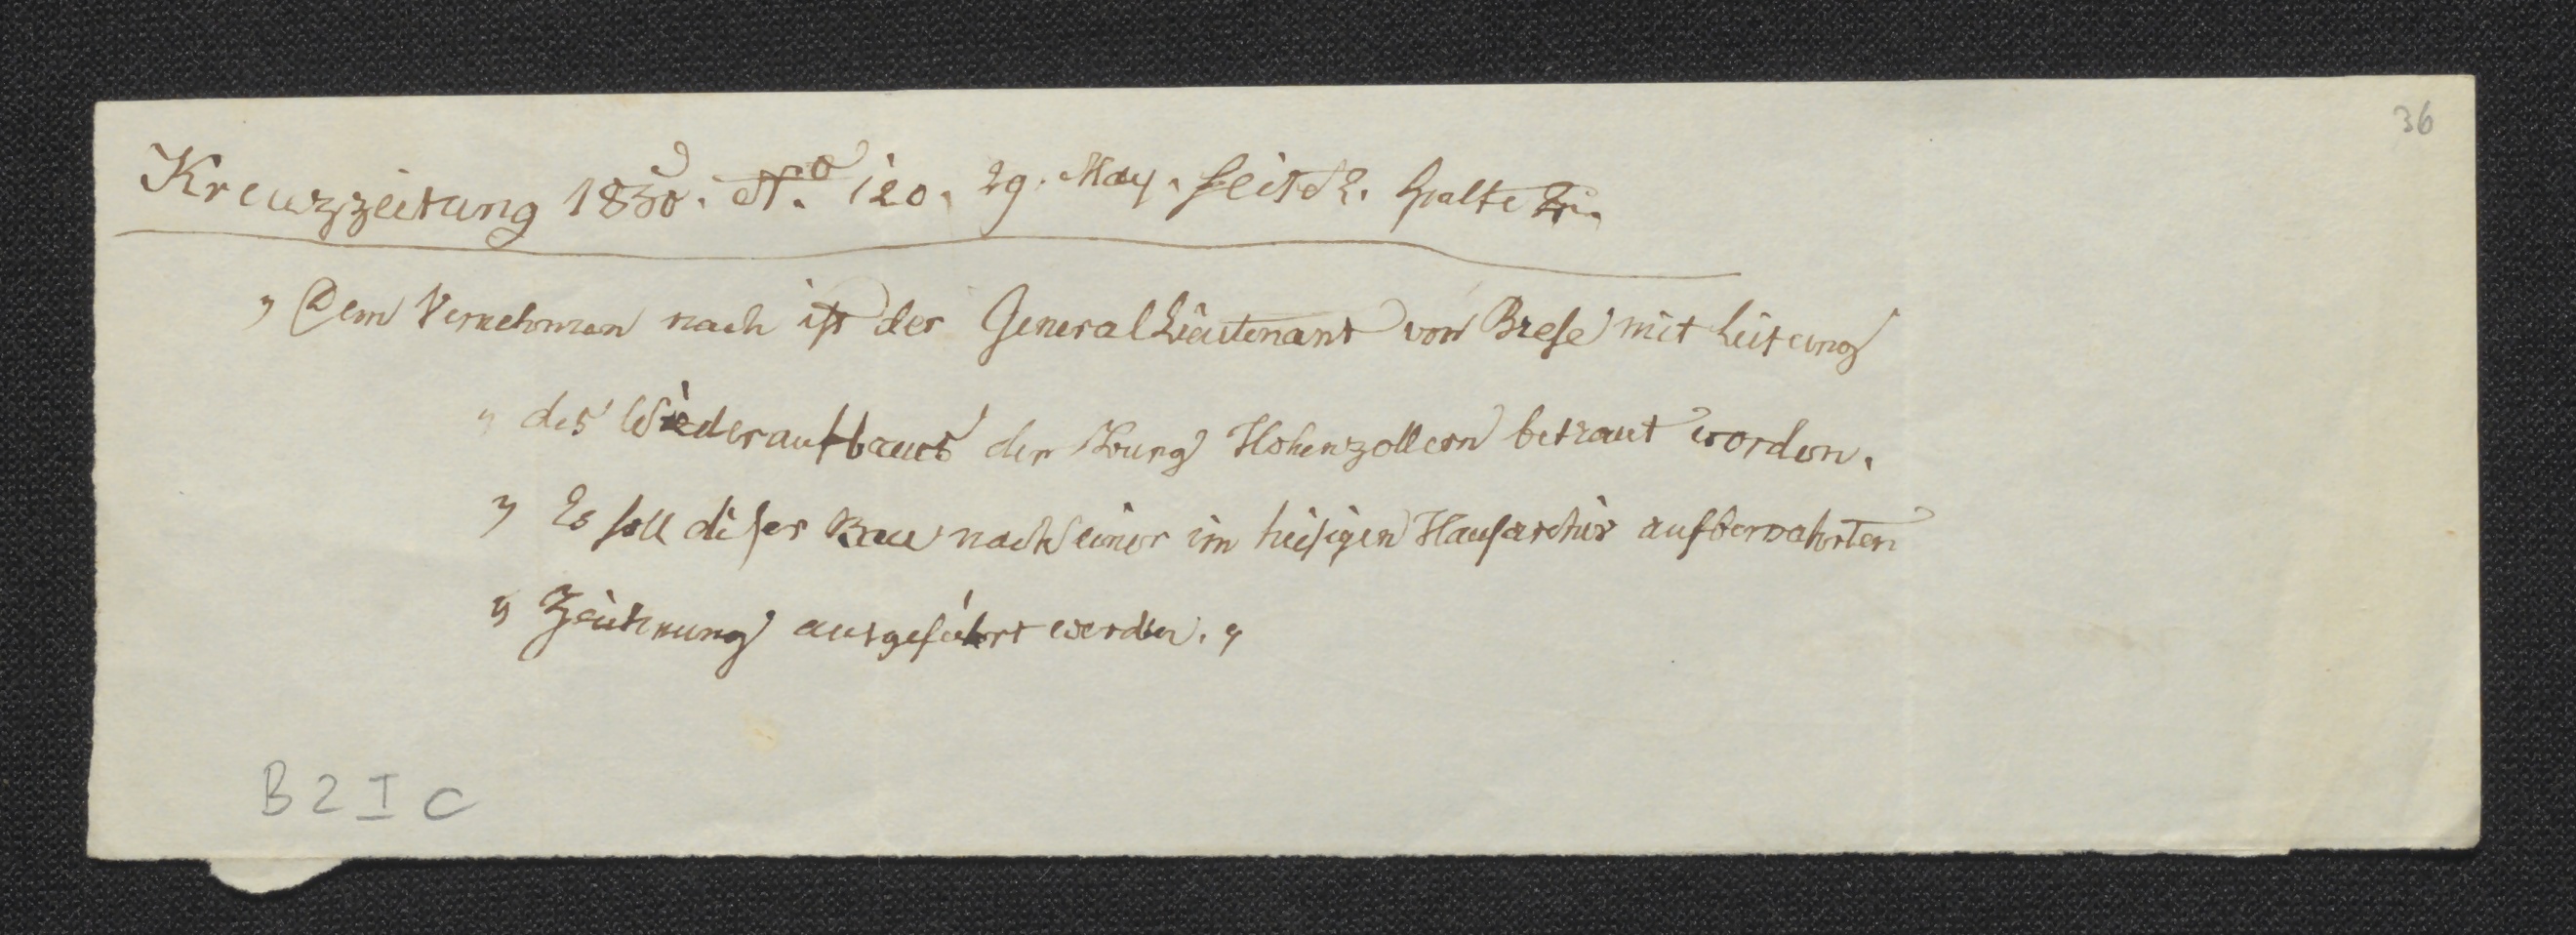 36
Kreuzzeitung 1850. No. 120. 29. May. Seite 2. Spalte
„ Dem Vernehmen nach ist der General Lieutenant von Brese mit Leitung
„ des Wiederaufbaues der Burg Hohenzollern betraut worden.
„ Es soll diser Bau nach einer im hiesigen Hausarchiv aufbewahrten
„ Zeichnung ausgeführt werden. „
B 2 I C